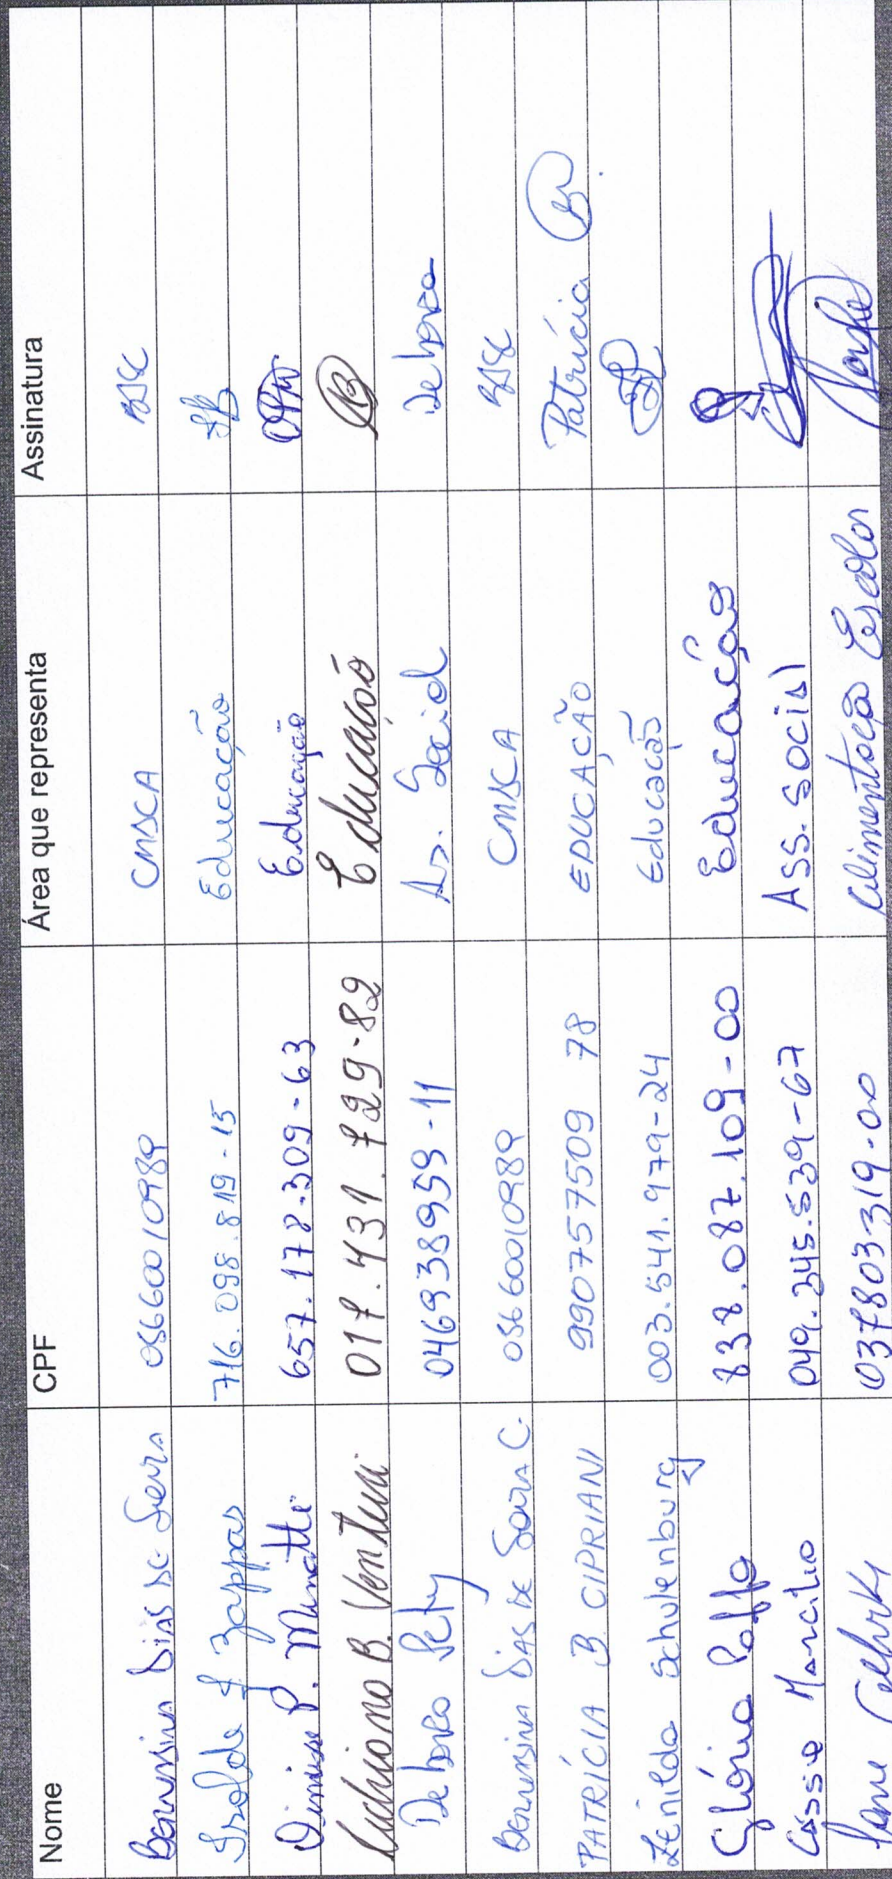 Nome CPF Área que representa Assinatura
Dias de 05660010989 CMSCA BJSC
Isolde J. Zappas 716.098.819-15 Educação JB
P. Minatti 657.178.309-63 Educação
Luciano B. Venturi 017.431.729-82 Educacão
Debora Pety 046938959-11 As. Social Debora
Dias de Souza C. 05660010989 CMSCA BJSC
PATRÍCIA B. CIPRIANI 990757509 78 EDUCAÇÃO Patrícia B
Zenilda Schulenburg 003.541.979-24 Educacão
Glória Poffo 838.087.109-00 Educação
Cassio Marcilio 049.245.539-67 Ass. Social
037803319-00 Alimentação Escolar